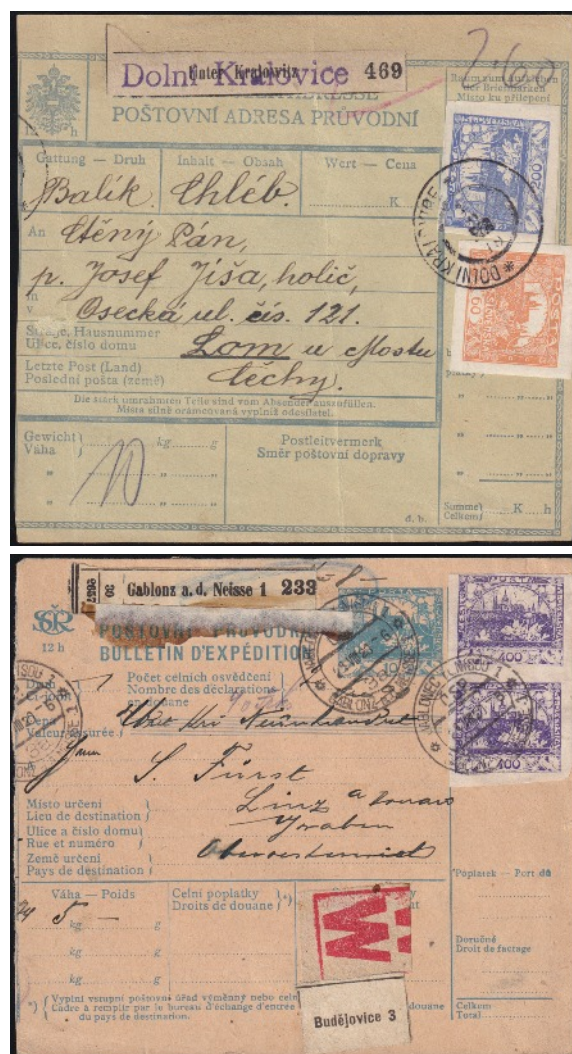 2·60
Dolní Kralovice
Unter Kralowitz 469
POŠTOVNÍ ADRESA PRŮVODNÍ
12 h
Raum zum Aufkleben
der Briefmarken
Místo ku přilepení
Gattung — Druh Inhalt — Obsah Wert — Cena
Balík. Chléb. K
200
DOLNÍ KRALOVICE
An Ctěný Pán,
p. Josef Jíša, holič,
in
v Osecká ul. čís. 121.
POŠTA
60
Straße, Hausnummer
Ulice, číslo domu
Lom u Mostu
Letzte Post (Land)
Poslední pošta (země)
Čechy.
Die stark umrahmten Teile sind vom Absender auszufüllen.
Místa silně orámcovaná vyplniž odesílatel.
Gewicht
Váha kg g
10
Postleitvermerk
Směr poštovní dopravy
Summe
Celkem K h
d. b.
Gablonz a. d. Neisse 1 233
ČSR
12 h
POŠTOVNÍ PRŮVODK
BULLETIN D'EXPÉDITION
400
400
Druh
Počet celních osvědčení
Nombre des déclarations
en douane
Cena
Valeur assurée
S. Fürst
Linz a Donau
Graben
Místo určení
Lieu de destination
Ulice a číslo domu
Rue et numéro
Země určení
Pays de destination
Poplatek — Port dû
Váha — Poids
5 —
kg g
kg g
kg g
Celní poplatky
Droits de douane
*)
W
Doručné
Droit de factage
Budějovice 3
*) Vyplní vstupní poštovní úřad výměnný nebo celn
Cadre à remplir par le bureau d'échange d'entrée douane
du pays de destination.
Celkem
Total